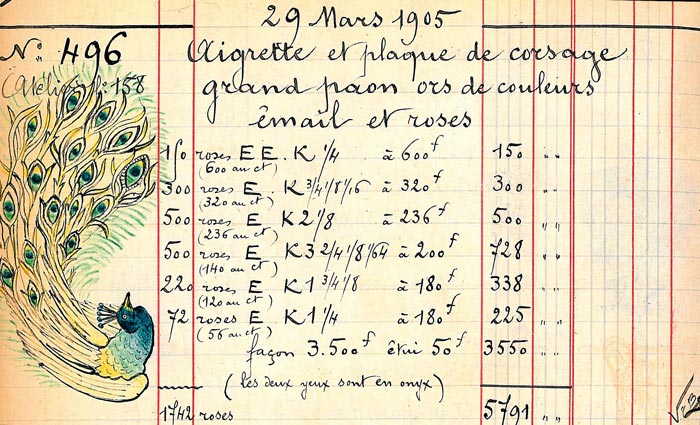 29 Mars 1905
N° 496 Aigrette et plaque de corsage
(Atelier 158 grand paon ors de couleurs
émail et roses
150 roses E E. K 1/4 à 600f 150 " "
(600 au ct)
300 roses E. K 3/4 1/8 1/16 à 320f 300 " "
(320 au ct)
500 roses E K 2 1/8 à 236f 500 " "
(236 au ct)
500 roses E K 3 2/4 1/8 1/64 à 200f 728 " "
(140 au ct)
220 roses E K 1 3/4 1/8 à 180f 338 " "
(120 au ct)
72 roses E K 1 1/4 à 180f 225 " "
(56 au ct)
façon 3.500f étui 50f 3550 " "
(les deux yeux sont en onyx)
1742 roses 5791 " "